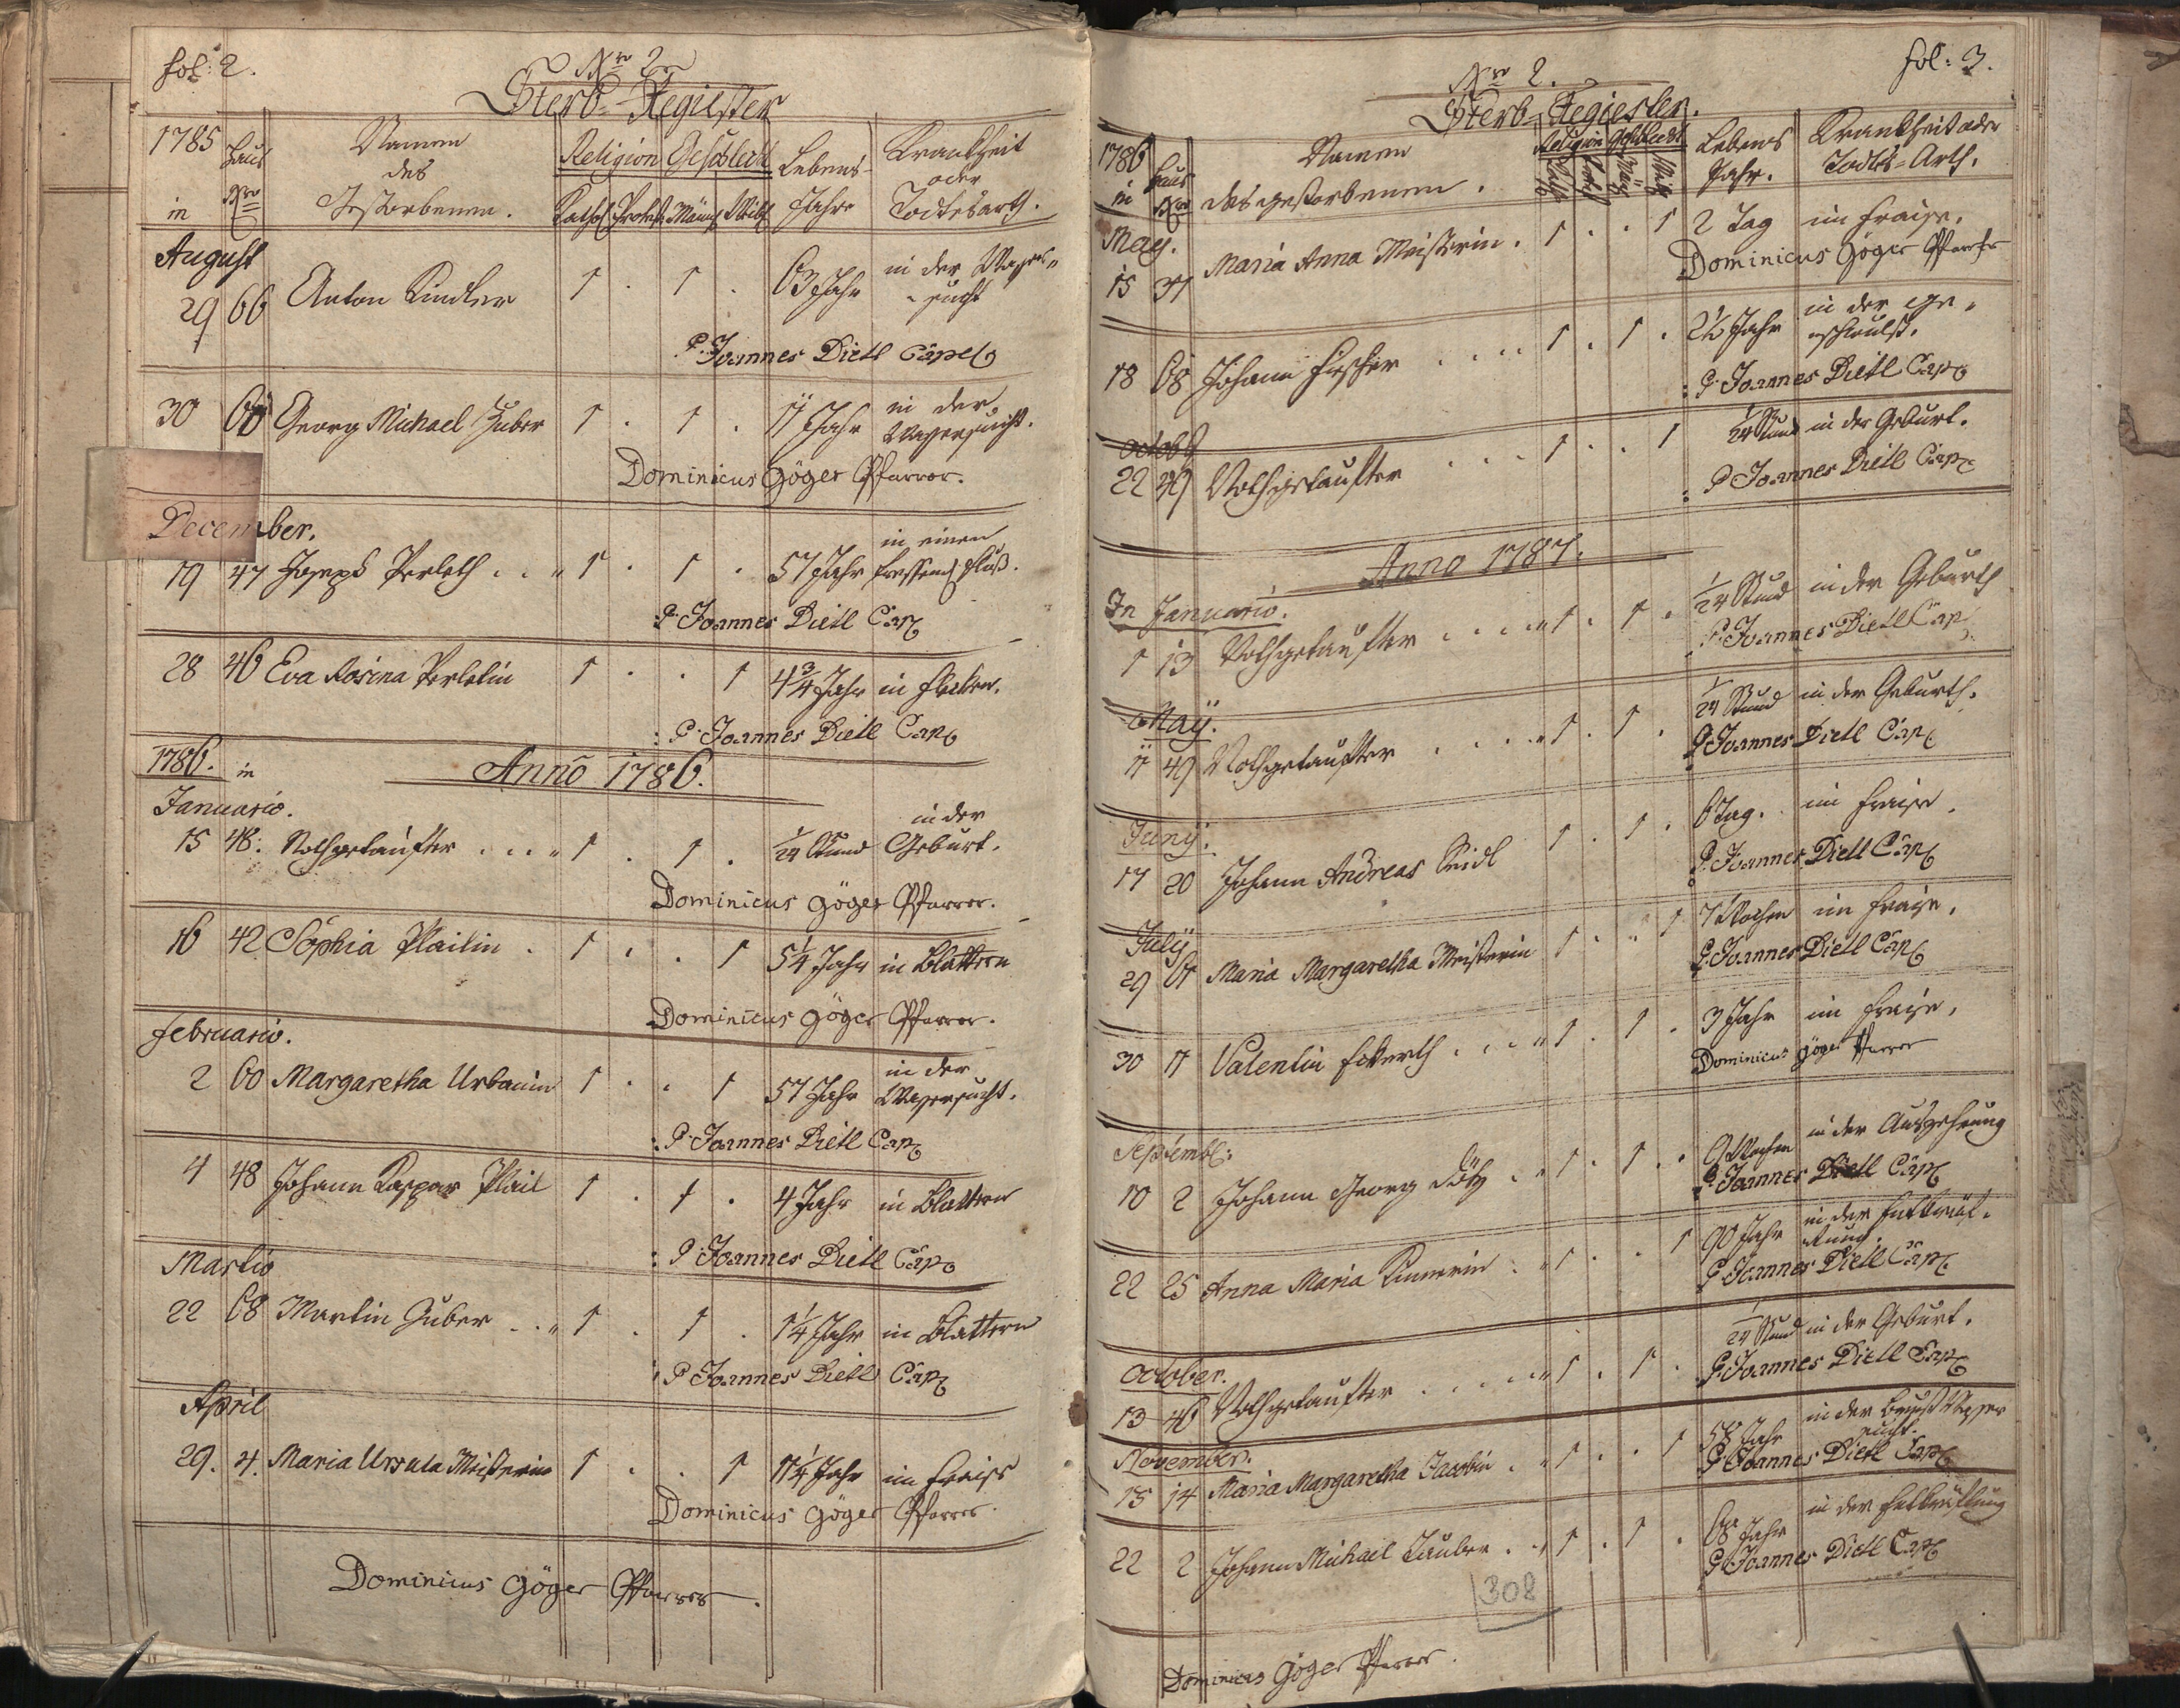 fol: 2.
Nro 2
Sterb-Regiester
1785 Haus Namen Religion Geschlecht Lebens- Krankheit
des oder
in Nro Gestorbenen. Kathol. Protest. Männl. Weibl. Jahre Todtesarth.
August
29 66 Anton Kindler 1 . 1 . 63 Jahr in der Wasser„
„sucht
P: Joannes Dietl Cap
30 Georg Michael Huber 1 . 1 . Jahr in der
Wassersucht.
Dominicus Göger Pfarrer.
December.
19 47 Joseph Perleth . . „ 1 . 1 . 57 Jahr in einen
fressend Fluß.
P: Joannes Dietl Cap
28 46 Eva Rosina Perletin 1 . . 1 4 3/4 Jahr in Flecken.
: P: Joannes Dietl Cap
1786. in Anno 1786.
Januario.
15 48. Nothgetaufter . . . „ 1 . 1 . 1/24 Stund in der
Geburt.
Dominicus Göger Pfarrer.
16 42 Sophia Plailin . 1 . . 1 5 1/4 Jahr in Blattern
Dominicus Göger Pfarrer.
Februario.
2 60 Margaretha Urbanin 1 . . 1 57 Jahr in der
Wassersucht.
: P: Joannes Dietl Cap
4 48 Johann Kaspar Plail 1 . 1 . 4 Jahr in Blattern
: P: Joannes Dietl Cap
Martio
22 68 Martin Huber . . „ 1 . 1 . 1 1/4 Jahr in Blattern
: P Joannes Dietl Cap
April
29. 4. Maria Ursula Meisterin 1 . . 1 1 1/4 Jahr im Fraiss
Dominicus Göger Pfarrer.
Dominicus Göger Pfarrer.
fol: 3.
Nro 2.
Sterb-Regiester.
1786 Haus Namen Religion Geschlecht Lebens Krankheit oder
in Nro des gestorbenen. Kath. Prot. Män. Weib. Jahr. Todts-Arth.
May.
15 31 Maria Anna Meisterin . 1 . . 1 2 Tag im Fraise.
Dominicus Göger Pfarrer
18 68 Johann Fischer . . . . 1 . 1 . 2 1/2 Jahr in der ge„
schwulst.
: P. Joannes Dietl Cap
Octob
22 49 Nothgetaufter . . . 1 . . 1 1/24 Stund in der Geburt.
: P Joannes Dietl Cap
Anno 1787.
In Januario.
1 13 Nothgetaufter . . . . „ 1 . 1 . 1/24 Stund in der Geburth
P. Joannes Dietl Cap
May.
11 49 Nothgetaufter . . . . „ 1 . 1 . 1/24 Stund in der Geburth.
P Joannes Dietl Cap
Juny.
17 20 Johann Andreas Seidl 1 . 1 . 6 Tag. im Fraise.
P. Joannes Dietl Cap
July
29 61 Maria Margaretha Meisterin 1 . „ 1 7 Wochen im Fraise.
P. Joannes Dietl Cap
30 11 Valentin Eckerth . . . „ 1 . 1 . 3 Jahr im Fraise.
Dominicus Göger Pfarrer
Septemb:
10 2 Johann Georg Götz . „ 1 . 1 . 9 Wochen in der Auszehrung
P. Joannes Dietl Cap
22 25 Anna Maria . „ 1 . . 1 90 Jahr in der Entkräf-
tung.
P Joannes Dietl Cap
October.
13 46 Nothgetaufter . . . . „ 1 . 1 . 1/24 Stund in der Geburt.
P. Joannes Dietl Cap
November.
15 14 Maria Margaretha Jacobin . „ 1 . . 1 58 Jahr in der Brust Wasser
sucht.
P Joannes Dietl Cap
22 2 Johann Michael Tauber . „ 1 . 1 . 68 Jahr in der Entkräftung
P Joannes Dietl Cap
308
Dominicus Göger Pfarrer.